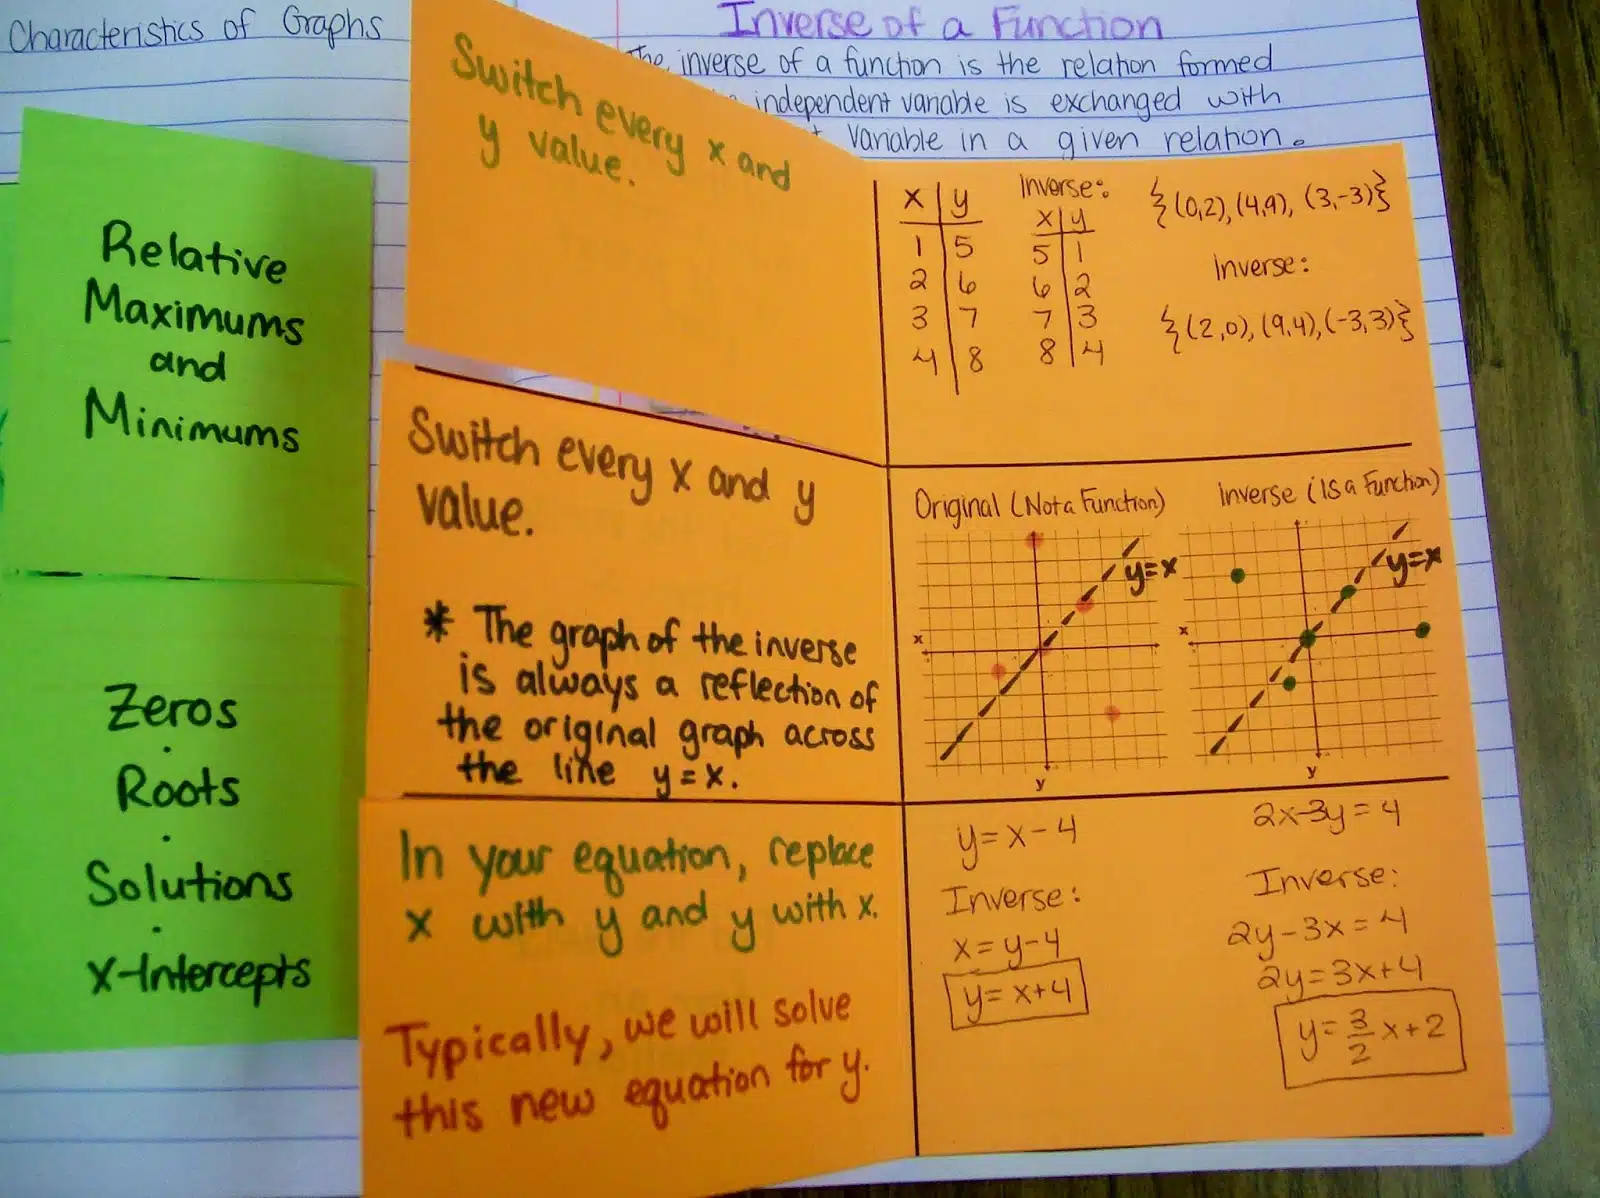 Characteristics of Graphs
Relative
Maximums
and
Minimums
Zeros
·
Roots
·
Solutions
·
x-Intercepts
Inverse of a Function
The inverse of a function is the relation formed
independent variable is exchanged with
variable in a given relation.
Switch every x and
y value.
x | y
1 | 5
2 | 6
3 | 7
4 | 8
Inverse:
x | y
5 | 1
6 | 2
7 | 3
8 | 4
{(0,2), (4,9), (3,-3)}
Inverse:
{(2,0), (9,4), (-3,3)}
Switch every x and y
value.
* The graph of the inverse
is always a reflection of
the original graph across
the line y=x.
Original (Not a Function)
y=x
x
y
Inverse (Is a Function)
y=x
x
y
In your equation, replace
x with y and y with x.
Typically, we will solve
this new equation for y.
y=x-4
Inverse:
x=y-4
y=x+4
2x-3y=4
Inverse:
2y-3x=4
2y=3x+4
y=3/2 x+2